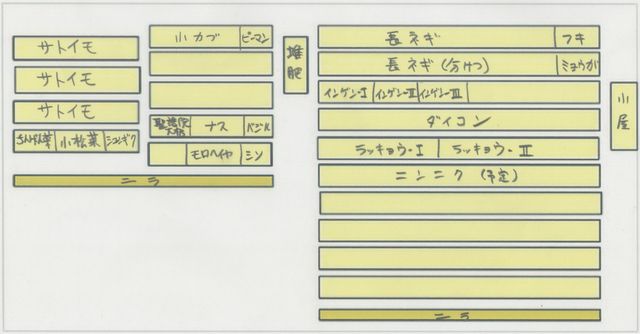 サトイモ
サトイモ
サトイモ
小松菜 シュンギク
小カブ ピーマン
聖護院大根 ナス バジル
モロヘイヤ シソ
ニラ
堆肥
長ネギ フキ
長ネギ(分けつ) ミョウガ
インゲン-I インゲン-II インゲン-III
ダイコン
ラッキョウ-I ラッキョウ-II
ニンニク (予定)
ニラ
小屋